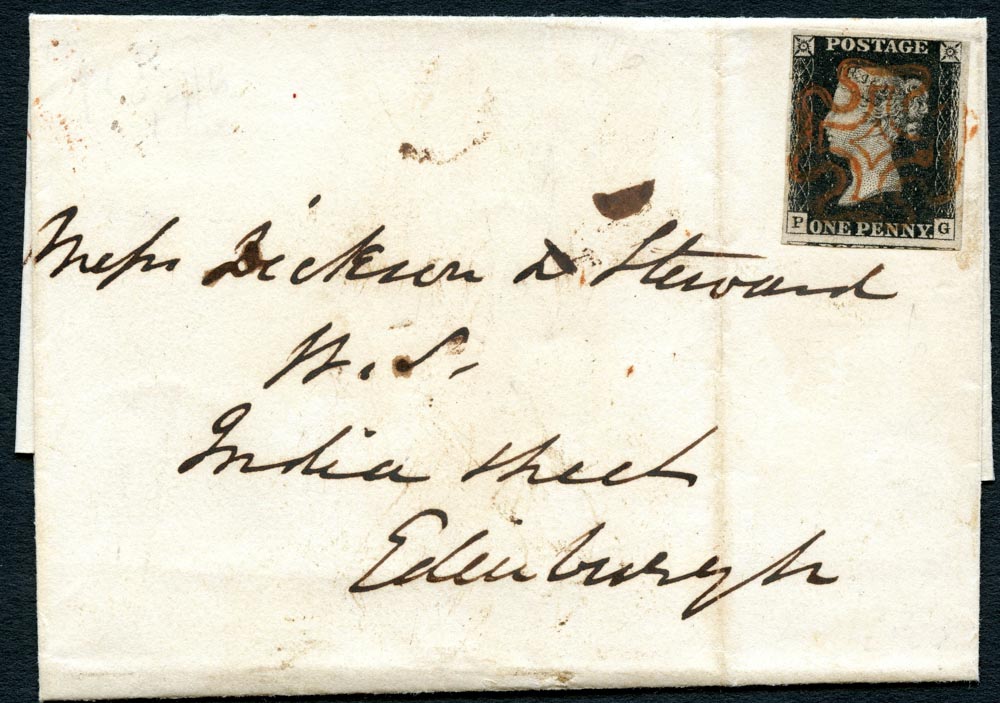 POSTAGE
P ONE PENNY G
Messrs Dickson & Steward
W. S.
India Street
Edinburgh